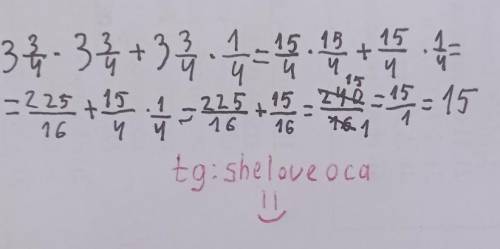 3 3/4 · 3 3/4 + 3 3/4 · 1/4 = 15/4 · 15/4 + 15/4 · 1/4 =
= 225/16 + 15/4 · 1/4 = 225/16 + 15/16 = 240 15/16 1 = 15/1 = 15
tg: sheloveoca